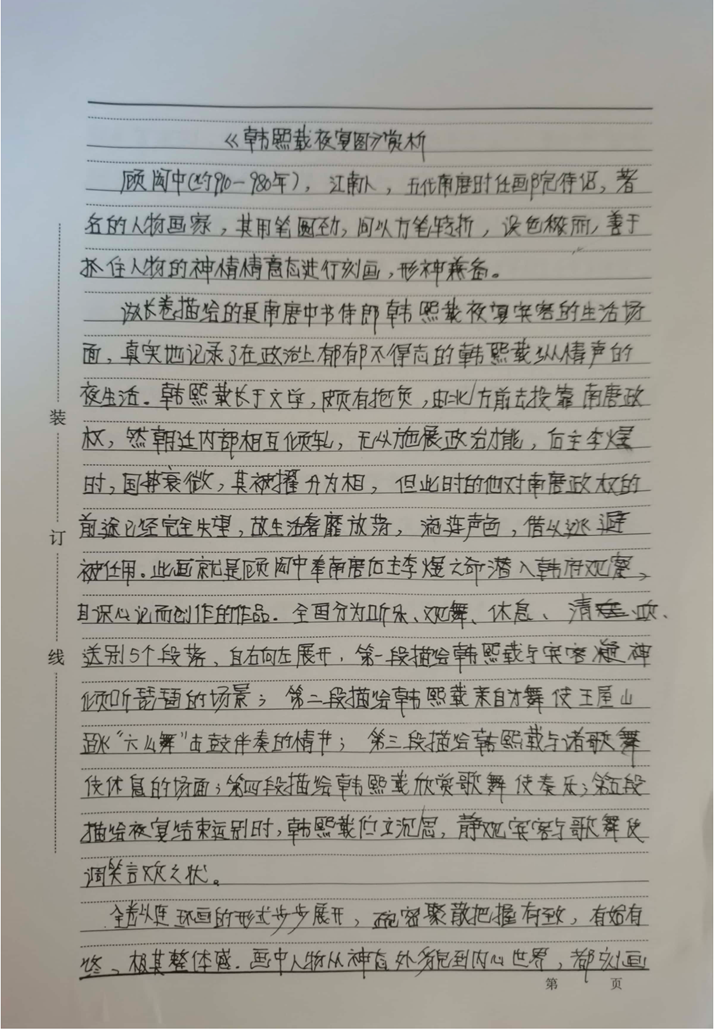 《韩熙载夜宴图》赏析
顾闳中(约910-980年)，江南人，五代南唐时任画院待诏，著
名的人物画家，其用笔圆劲，间以方笔转折，设色秾丽，善于
抓住人物的神情情意态进行刻画，形神兼备。
该长卷描绘的是南唐中书侍郎韩熙载夜宴宾客的生活场
面，真实地记录了在政治上郁郁不得志的韩熙载纵情声的
夜生活。韩熙载长于文学，颇有抱负，由北方前去投靠南唐政
装
权，然朝廷内部相互倾轧，无从施展政治才能，后主李煜
时，国势衰微，其被擢升为相，但此时的他对南唐政权的
订
前途已经完全失望，故生活奢靡放荡，流连声色，借以逃避
被任用。此画就是顾闳中奉南唐后主李煜之命潜入韩府观察，
目识心记而创作的作品。全图分为听乐、观舞、休息、清吹、
线
送别5个段落，自右向左展开，第一段描绘韩熙载与宾客凝神
倾听琵琶的场景；第二段描绘韩熙载亲自为舞伎王屋山
跳“六幺舞”击鼓伴奏的情节；第三段描绘韩熙载与诸歌舞
伎休息的场面；第四段描绘韩熙载欣赏歌舞伎奏乐；第五段
描绘夜宴结束送别时，韩熙载伫立沉思，静观宾客与歌舞伎
调笑言欢之状。
全卷以连环画的形式步步展开，疏密聚散把握有致，有始有
终、极其整体感。画中人物从神态外貌到内心世界，都刻画
第 页